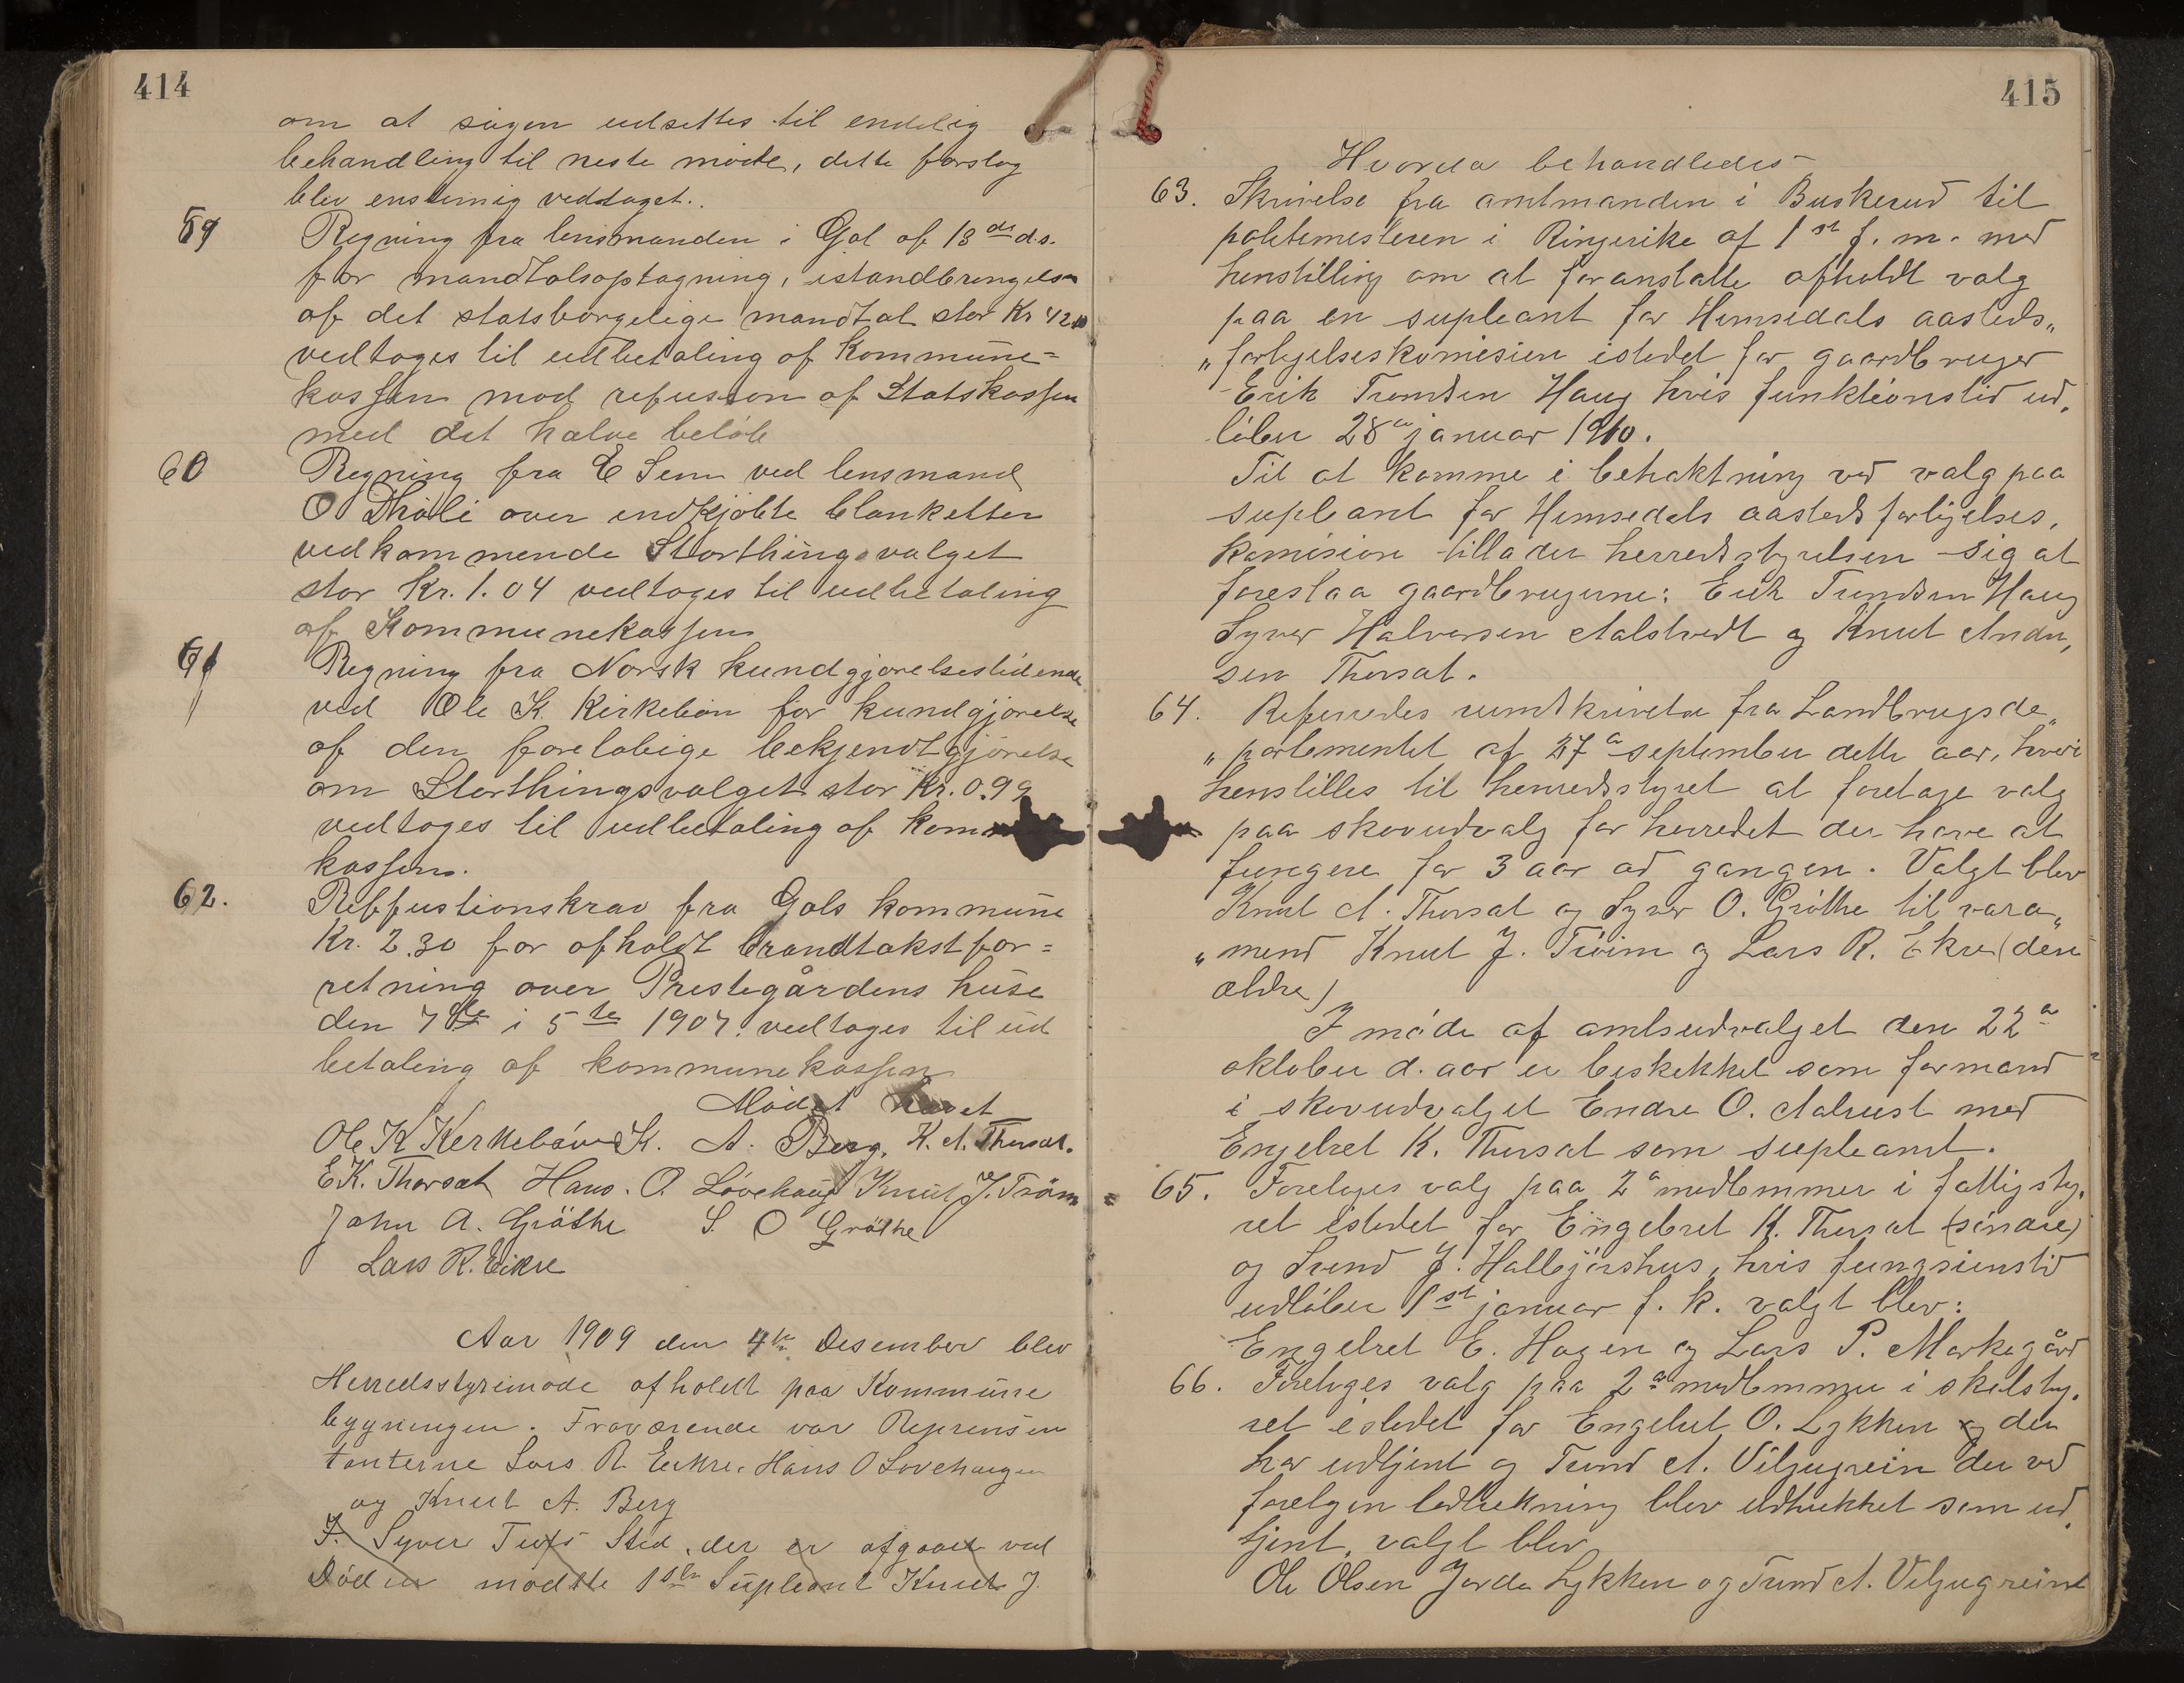 414
om at sagen udsettes til endelig
behandling til neste møde, dette forslag
blev enstemig vedtaget.
59 Regning fra lensmanden i Gol af 13de ds.
for mandtalsoptagning, istandbringelse
af det statsborgelige mandtal stor Kr 42
vedtoges til udbetaling af Kommune=
kassen mod refusion af Statskassen
med det halve beløb
60 Regning fra E Sem ved lensmand
O Tholi over indkjøbte blanketter
vedkommende Storthingsvalget
stor Kr. 1.04 vedtoges til udbetaling
af Kommunekassen
61 Regning fra Norsk kundgjørelsestidende
ved Ole K. Kirkebøn for kundgjørelse
af den foreløbige bekjendtgjørelse
om Storthingsvalget stor Kr. 0.99
vedtoges til udbetaling af kom
kassen.
62. Reffustionskrav fra Gols kommune
Kr. 2.30 for afholdt brandtakstfor=
retning over Prestegårdens huse
den 7de i 5te 1907. vedtoges til ud
betaling af kommunekassen
Mødet hævet
Ole K Kerkebøn K. A. Berg. K. A. Thorsat.
E.K. Thorsat Hans. O. Løvehaug Knut J. Trøim
John A. Grøthe S. O Grøthe
Lars R. Eikre
Aar 1909 den 4de Desember blev
Herredsstyremøde afholdt paa Kommune
bygningen. Fraværende var Reprensen
tanterne Lars R. Eekre. Hans O Løvehaugen
og Knut A. Berg
I. Syver Tufs Sted, der er afgaaet ved
Døden mødtte 1ste Supleant Knut J.
415
Hvorda behandledes
63. Skrivelse fra amtmanden i Buskerud til
politimesteren i Ringerike af 1st f. m. med
henstilling om at foranstalte afholdt valg
paa en supleant for Hemsedals aasteds„
„forligelseskomisien istedet for gaardbruger
Erik Trondsen Haug hvis funktionstid ud„
løber 28a januar 1910.
Til at komme i betraktning ved valg paa
supleant for Hemsedals aastedsforligelses„
komision tillader herredsstyrelsen sig at
foreslaa gaardbrugerne: Erik Trondsen Haug
Syver Halvorsen Aalstvedt og Knut Andr„
sen Thorsat.
64. Refereredes rundskrivelse fra Landbrugsde„
„partementet af 27a september dette aar, hvori
henstilles til herredsstyret at foretage valg
paa skovudvalg for herredet der have at
fungere for 3 aar ad gangen. Valgt blev
Knut A. Thorsat og Syver O. Grøthe til vara„
„mend Knut J. Trøim og Lars R. Ekre (den
ældre)
I møde af amtsudvalget den 22a
oktober d. aar er beskikket som formand
i skovudvalget Endre O. Aalrust med
Engebret K. Thorsat som supleant.
65. Foretoges valg paa 2a medlemmer i fattigsty„
ret istedet for Engebret K. Thorsat (søndre)
og Svend J. Halbjørshus, hvis fungsionstid
udløber 1st januar f. k. valgt blev:
Engebret E. Hagen og Lars P. Markegård
66. Foretoges valg paa 2a medlemmer i skolsty„
ret istedet for Engebret O. Lykken og den
har udtjent og Trond A. Viljugrein der ved
foretagen lodtrekning blev udtrukket som ud„
tjent, valgt blev
Ole Olsen Jorde Lykken og Trond A. Viljugrein